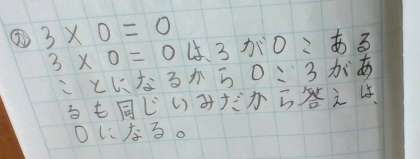 ㉒ 3×0=0
3×0=0は、3が0こある
ことになるから0こ3があ
るも同じいみだから答えは、
0になる。